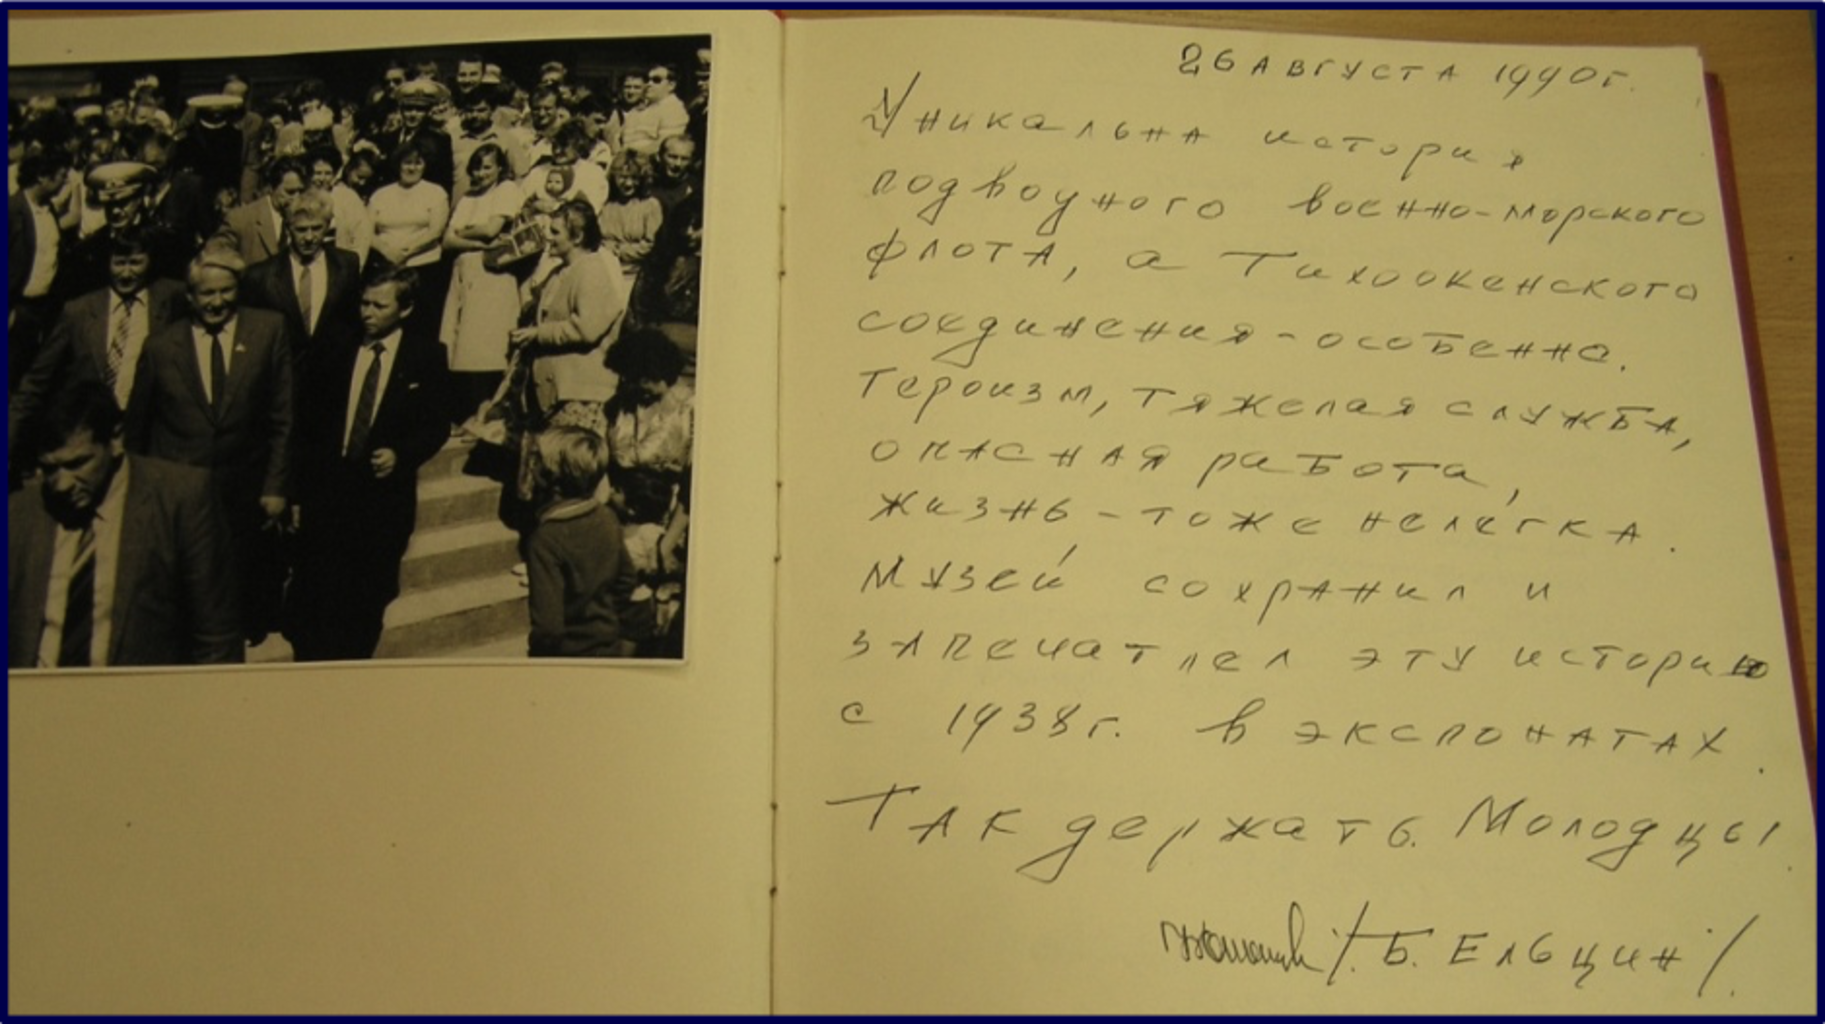 26 августа 1990г.
Уникальна история
подводного военно-морского
флота, а Тихоокенского
соединения - особенно.
Героизм, тяжелая служба,
опасная работа,
жизнь - тоже нелегка.
Музей сохранил и
запечатлел эту историю
с 1938г. в экспонатах.
Так держать. Молодцы.
/Б. Ельцин/